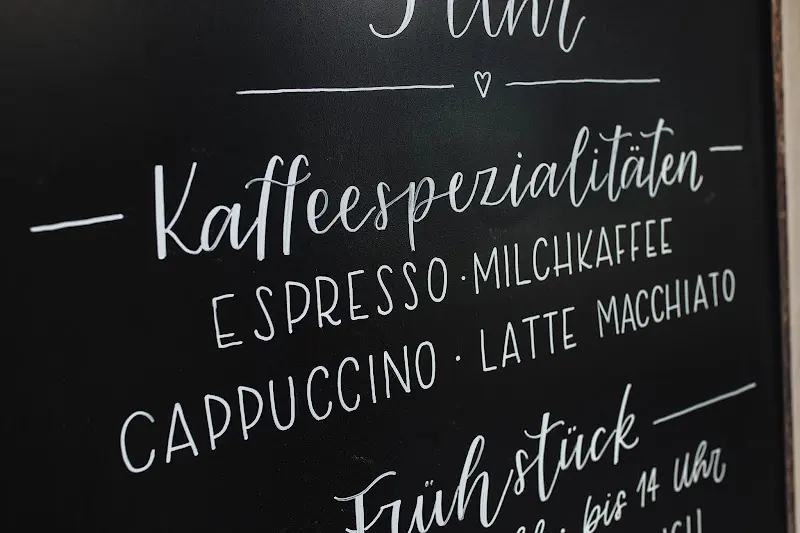 Uhr
— Kaffeespezialitäten —
ESPRESSO · MILCHKAFFEE
CAPPUCCINO · LATTE MACCHIATO
Frühstück —
bis 14 Uhr